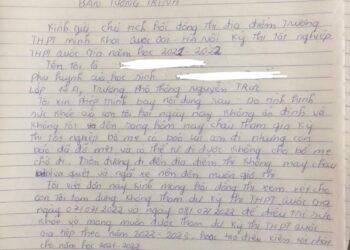 BẢN TƯỜNG TRÌNH
Kính gửi: chủ tịch hội đồng thi địa điểm trường
THPT Minh Khai Quốc Oai - Hà Nội kỳ thi tốt nghiệp
THPT Quốc gia năm học 2021 - 2022
Tên tôi là
Phụ huynh của học sinh:
Lớp 12A, Trường phổ thông Nguyễn Trực
Tôi xin phép trình bày nội dung sau: Do tình hình
sức khỏe của con tôi hai ngày nay không ổn định và
không tốt đến sáng hôm nay cháu tham gia kỳ
thi tốt nghiệp. Bố mẹ có bảo con đi nhưng con
bảo đã đỡ mệt và có thể tự đi được không cho bố mẹ
chở đi. Trên đường đi đến địa điểm thi không may cháu
bị va quệt và ngã xe nên đến muộn giờ thi
Tôi viết đơn này kính mong hội đồng thi xem xét cho
con tôi tạm dừng không tham dự kỳ thi THPT Quốc gia
ngày 07/07/2022 và ngày 08/07/2022 để điều trị sức
khỏe và mong muốn được tham dự kỳ thi THPT Quốc
gia tiếp theo năm 2022 - 2023. hoặc tạo điều kiện xét cho
cho năm học 2021-2022